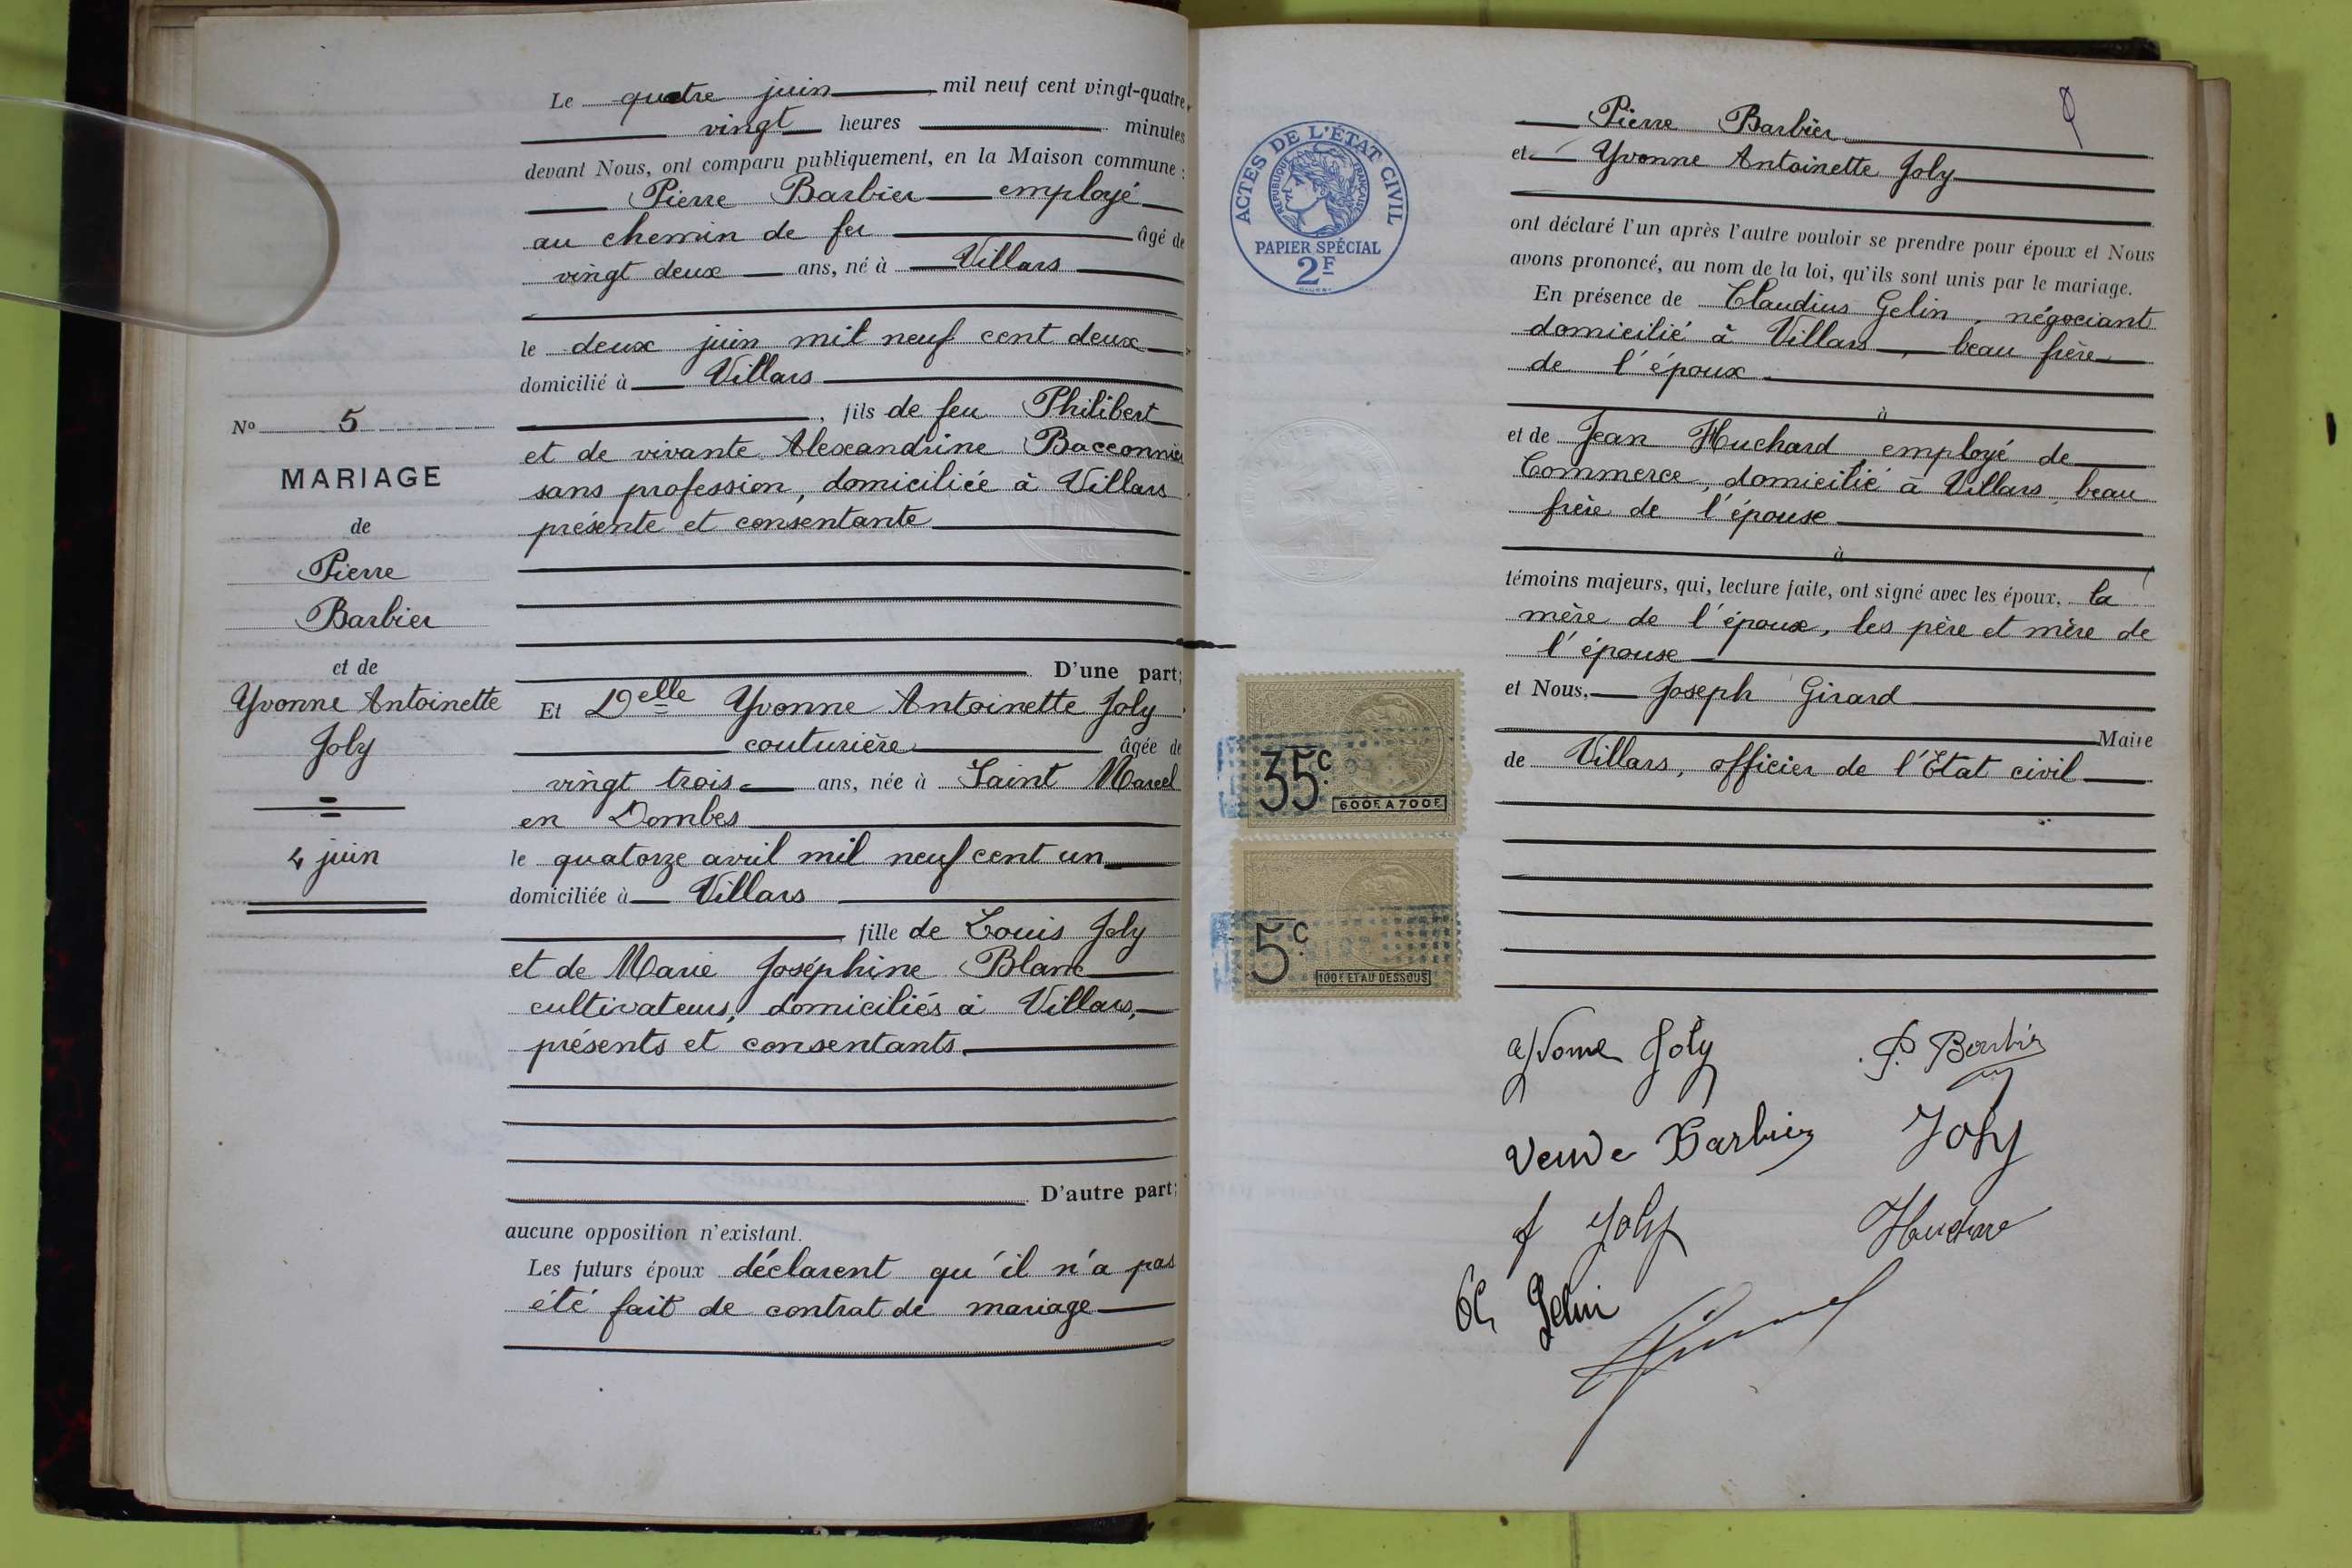 Le quatre juin mil neuf cent vingt-quatre
vingt heures minutes
devant Nous, ont comparu publiquement, en la Maison commune :
Pierre Barbier employé
au chemin de fer âgé de
vingt deux ans, né à Villars
le deux juin mil neuf cent deux
domicilié à Villars
, fils de feu Philibert
et de vivante Alexandrine Bacconnier
sans profession, domiciliée à Villars
présente et consentante
D'une part;
Et Delle Yvonne Antoinette Joly
couturière âgée de
vingt trois ans, née à Saint Marcel
en Dombes
le quatorze avril mil neuf cent un
domiciliée à Villars
, fille de Louis Joly
et de Marie Joséphine Blanc
cultivateurs, domiciliés à Villars,
présents et consentants
D'autre part;
aucune opposition n'existant.
Les futurs époux déclarent qu'il n'a pas
été fait de contrat de mariage
No 5
MARIAGE
de
Pierre
Barbier
et de
Yvonne Antoinette
Joly
4 juin
ACTES DE L'ÉTAT CIVIL
RÉPUBLIQUE FRANÇAISE
PAPIER SPÉCIAL
2F
35c
600F. A 700F.
5c
100F. ET AU DESSOUS
Pierre Barbier
et Yvonne Antoinette Joly
ont déclaré l'un après l'autre vouloir se prendre pour époux et Nous
avons prononcé, au nom de la loi, qu'ils sont unis par le mariage.
En présence de Claudius Gelin, négociant
domicilié à Villars, beau frère
de l'époux
à
et de Jean Huchard, employé de
Commerce, domicilié à Villars, beau
frère de l'épouse
à
témoins majeurs, qui, lecture faite, ont signé avec les époux, la
mère de l'époux, les père et mère de
l'épouse
et Nous, Joseph Girard
Maire
de Villars, officier de l'Etat civil
Yvonne Joly
P. Barbier
Veuve Barbier
Joly
J Joly
Cl Gelin